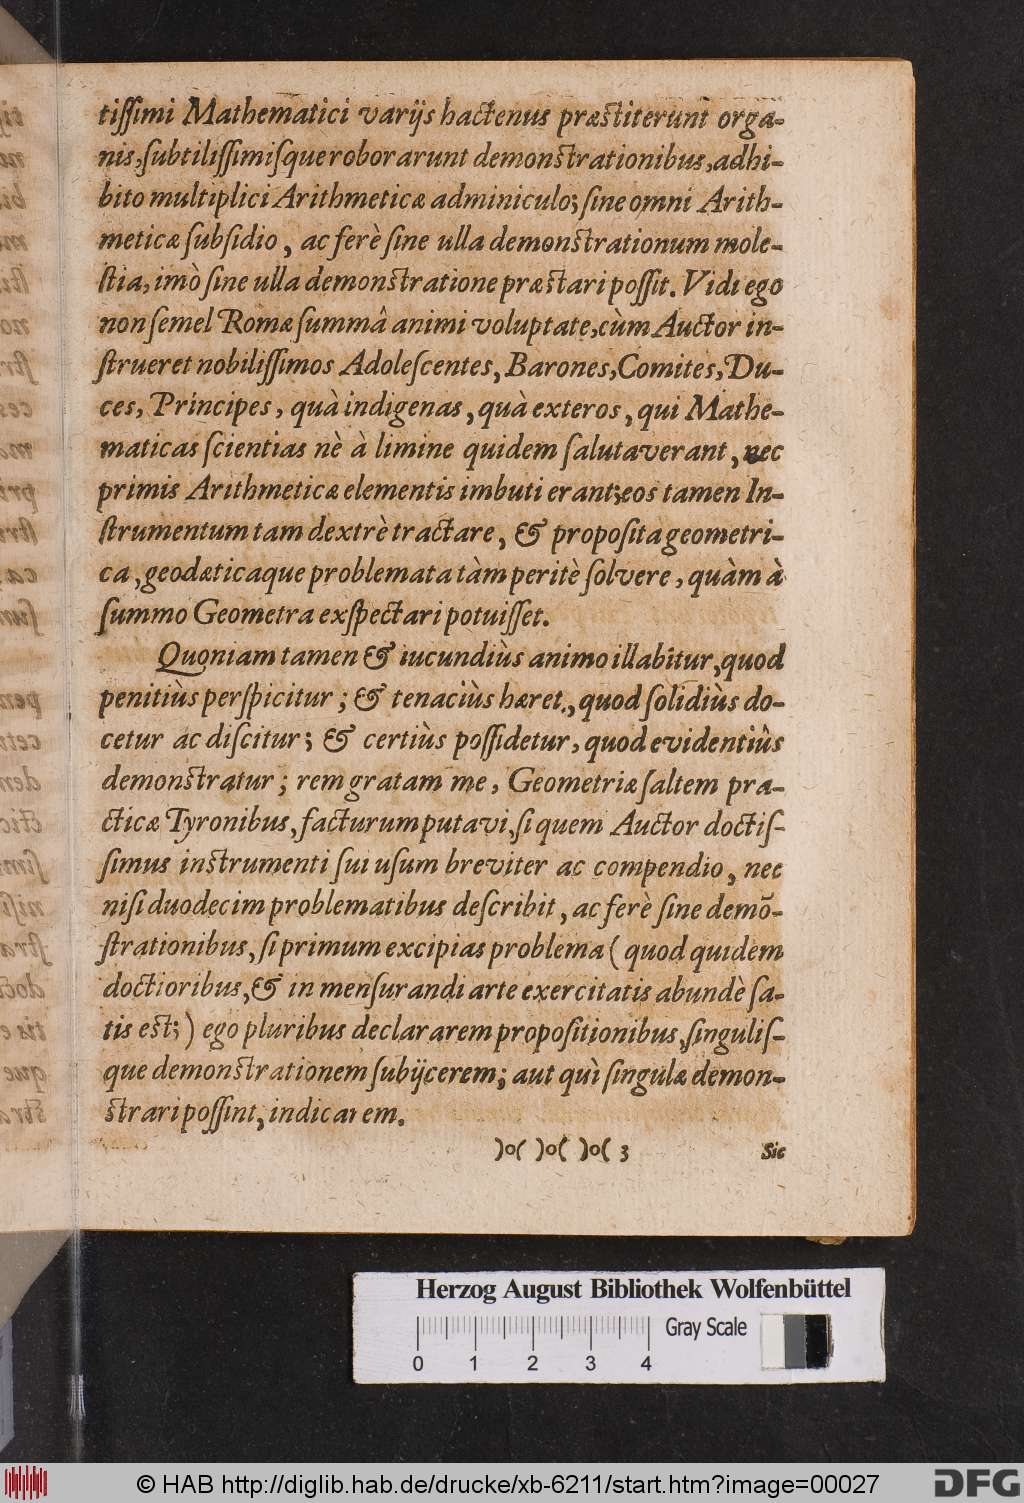 tiſſimi Mathematici varijs hactenus præſtiterunt orga-
nis, ſubtiliſſimiſque roborarunt demonſtrationibus, adhi-
bito multiplici Arithmeticæ adminiculo; ſine omni Arith-
meticæ ſubſidio, ac ferè ſine ulla demonſtrationum mole-
ſtia, imò ſine ulla demonſtratione præſtari poſſit. Vidi ego
non ſemel Romæ ſummâ animi voluptate, cùm Auctor in-
ſtrueret nobiliſſimos Adoleſcentes, Barones, Comites, Du-
ces, Principes, quà indigenas, quà exteros, qui Mathe-
maticas ſcientias nè à limine quidem ſalutaverant, nec
primis Arithmeticæ elementis imbuti erant; eos tamen In-
ſtrumentum tam dextrè tractare, & propoſita geometri-
ca, geodæticaque problemata tàm peritè ſolvere, quàm à
ſummo Geometra exſpectari potuiſſet.
Quoniam tamen & iucundiùs animo illabitur, quod
penitiùs perſpicitur; & tenaciùs hæret, quod ſolidiùs do-
cetur ac diſcitur; & certiùs poſſidetur, quod evidentiùs
demonſtratur; rem gratam me, Geometriæ ſaltem pra-
cticæ Tyronibus, facturum putavi, ſi quem Auctor doctiſ-
ſimus inſtrumenti ſui uſum breviter ac compendio, nec
niſi duodecim problematibus deſcribit, ac ferè ſine demõ-
ſtrationibus, ſi primum excipias problema (quod quidem
doctioribus, & in menſurandi arte exercitatis abundè ſa-
tis eſt;) ego pluribus declararem propoſitionibus, ſinguliſ-
que demonſtrationem ſubijcerem; aut quì ſingulæ demon-
ſtrari poſſint, indicarem.
)o( )o( )o( 3 Sic
Herzog August Bibliothek Wolfenbüttel
Gray Scale
0 1 2 3 4
© HAB http://diglib.hab.de/drucke/xb-6211/start.htm?image=00027
DFG